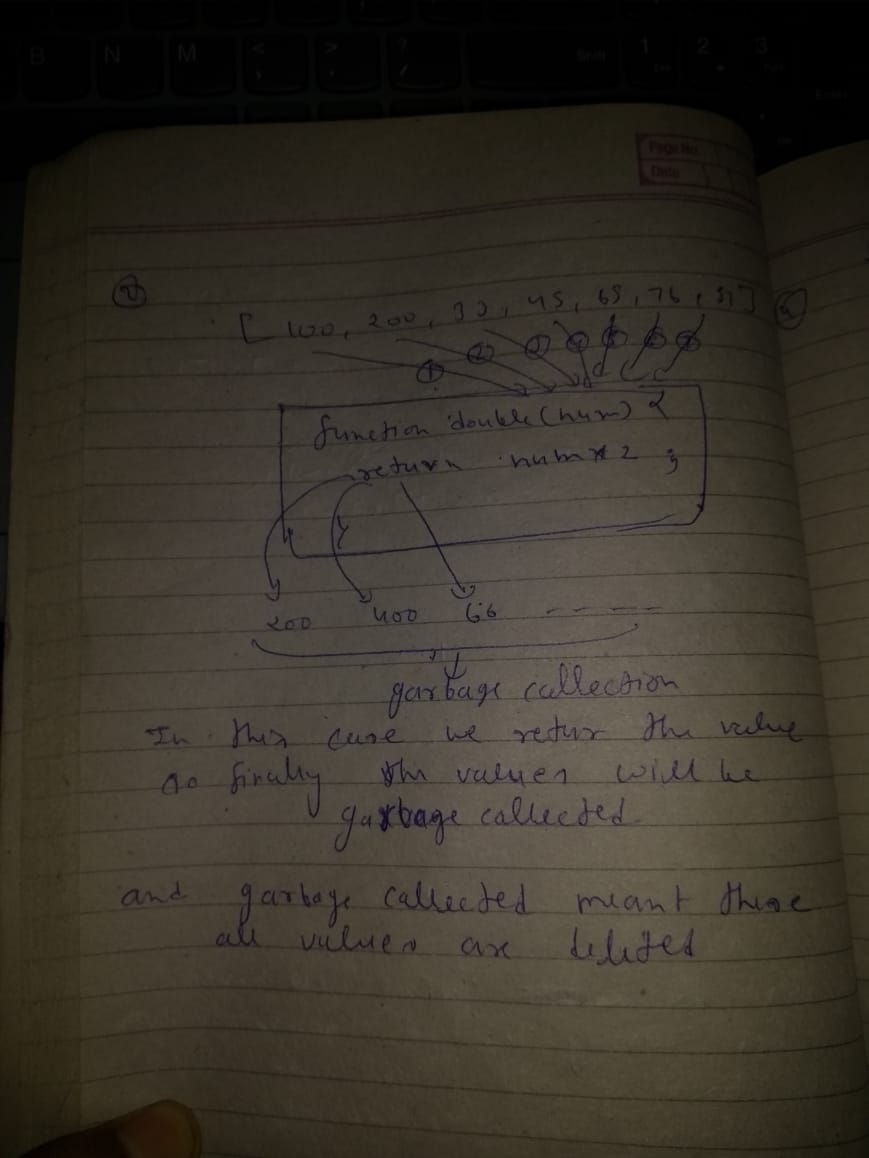 B N M < , > . ? / Shift 1 2 3
Page No.
Date
[ 100, 200, 33, 45, 65, 76, 51]
1 2 3 4
function double(num) {
return num * 2 ;
}
200 400 66 - - - -
garbage collection
In this case we retur the value
so finally the values will be
garbage collected
and garbage collected meant these
all values are deleted